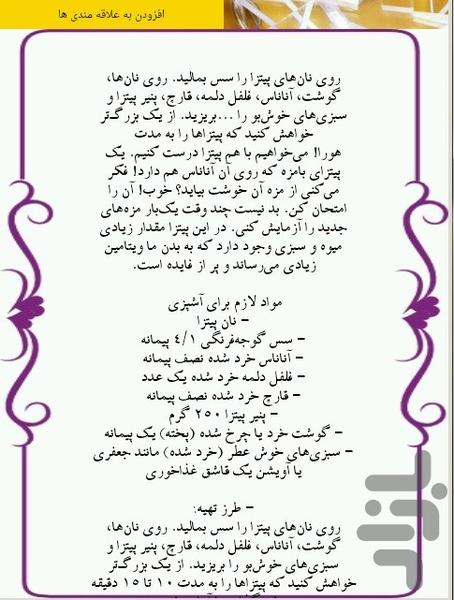 افزودن به علاقه مندی ها
روی نان‌های پیتزا را سس بمالید. روی نان‌ها،
گوشت، آناناس، فلفل دلمه، قارچ، پنیر پیتزا و
سبزی‌های خوش‌بو را ...بریزید. از یک بزرگ‌تر
خواهش کنید که پیتزاها را به مدت
هورا! می‌خواهیم با هم پیتزا درست کنیم. یک
پیتزای بامزه که روی آن آناناس هم دارد! فکر
می‌کنی از مزه آن خوشت بیاید؟ خوب! آن را
امتحان کن. بد نیست چند وقت یک‌بار مزه‌های
جدید را آزمایش کنی. در این پیتزا مقدار زیادی
میوه و سبزی وجود دارد که به بدن ما ویتامین
زیادی می‌رساند و پر از فایده است.
مواد لازم برای آشپزی
– نان پیتزا
– سس گوجه‌فرنگی ۴/۱ پیمانه
– آناناس خرد شده نصف پیمانه
– فلفل دلمه خرد شده یک عدد
– قارچ خرد شده نصف پیمانه
– پنیر پیتزا ۲۵۰ گرم
– گوشت خرد یا چرخ شده (پخته) یک پیمانه
– سبزی‌های خوش عطر (خرد شده) مانند جعفری
یا آویشن یک قاشق غذاخوری
– طرز تهیه:
روی نان‌های پیتزا را سس بمالید. روی نان‌ها،
گوشت، آناناس، فلفل دلمه، قارچ، پنیر پیتزا و
سبزی‌های خوش‌بو را بریزید. از یک بزرگ‌تر
خواهش کنید که پیتزاها را به مدت ۱۰ تا ۱۵ دقیقه
بازار